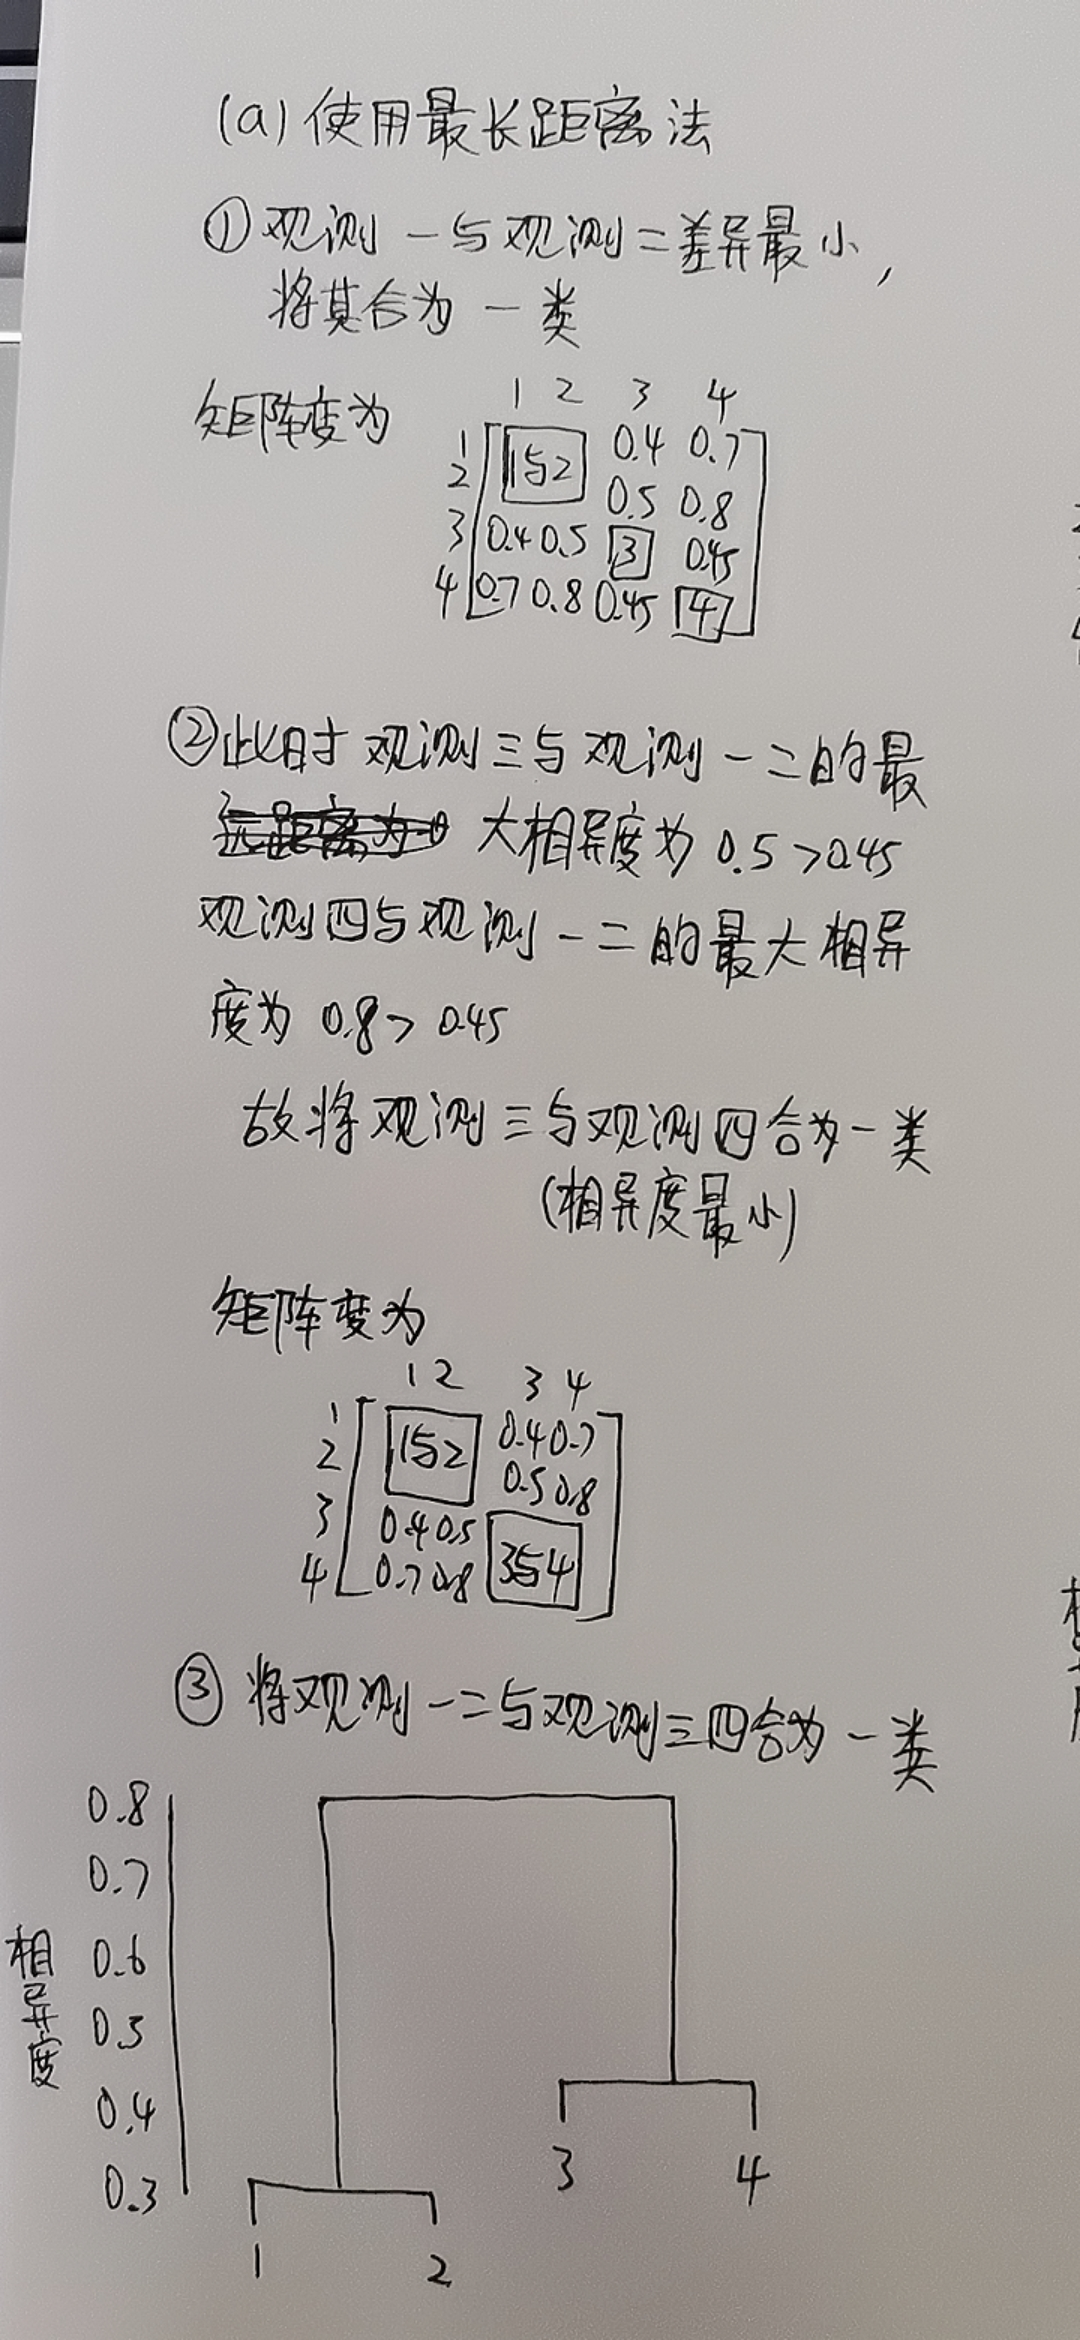 (a) 使用最长距离法
① 观测一与观测二差异最小,
将其合为一类
矩阵变为
1 2 3 4
1 0.4 0.7
2 1与2 0.5 0.8
3 0.4 0.5 3 0.45
4 0.7 0.8 0.45 4
② 此时观测三与观测一二的最
大相异度为 0.5>0.45
观测四与观测一二的最大相异
度为 0.8>0.45
故将观测三与观测四合为一类
(相异度最小)
矩阵变为
1 2 3 4
1 0.4 0.7
2 1与2 0.5 0.8
3 0.4 0.5
4 0.7 0.8 3与4
③ 将观测一二与观测三四合为一类
0.8
0.7
0.6
0.5
0.4
0.3
相异度
3 4
1 2